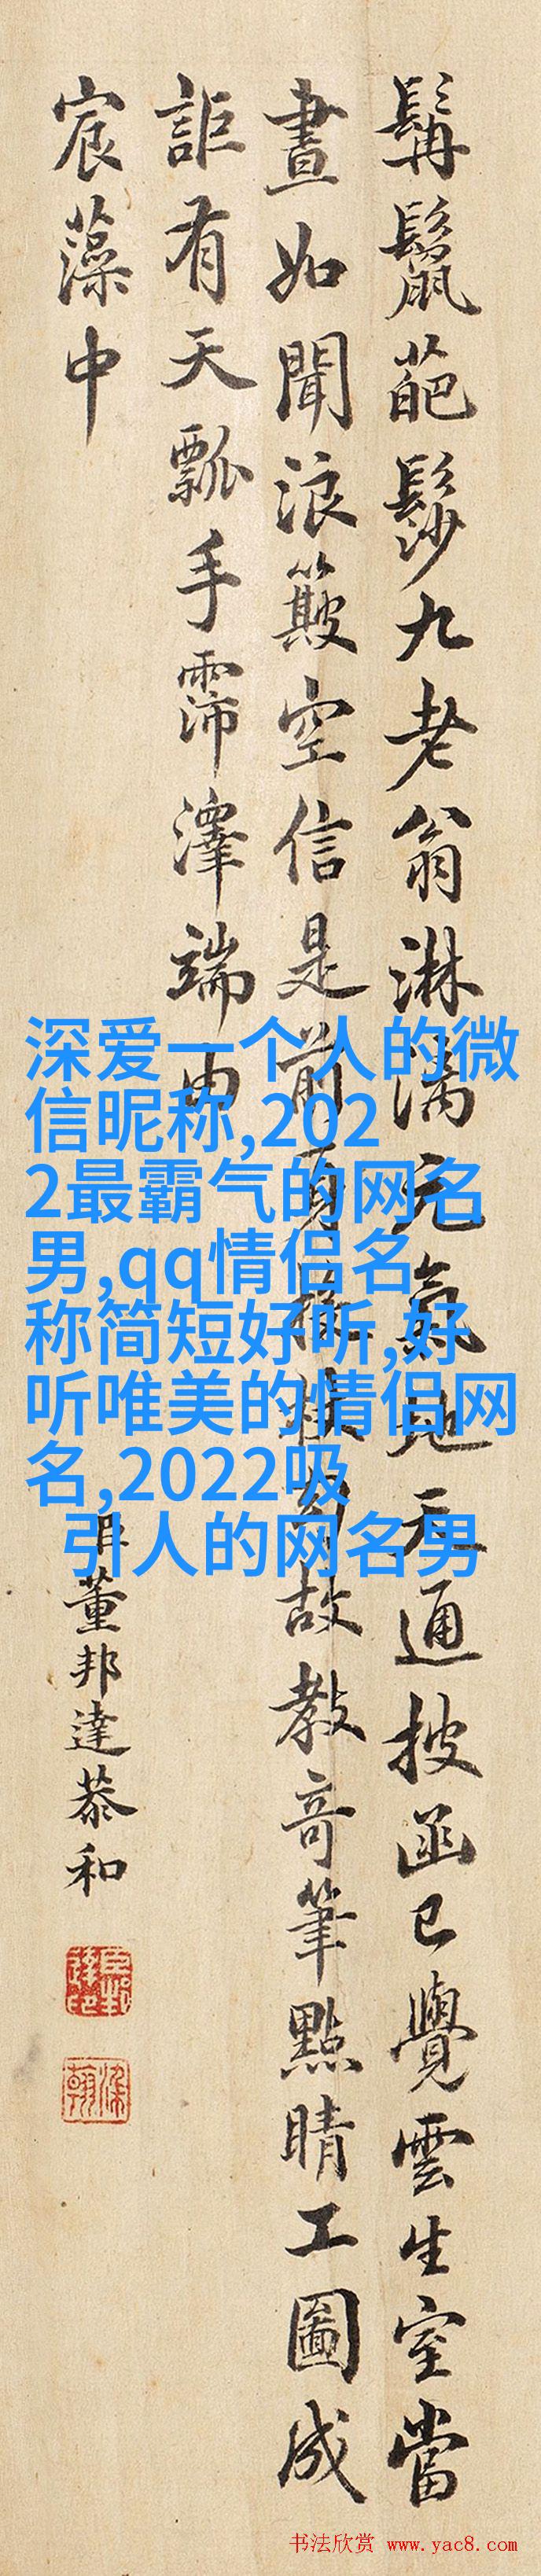 髯鬣葩髿九老翁淋漓元氣地天通披函已覺雲生室當
晝如聞浪簸空信是前身故教奇筆點睛工圖成
詎有天瓢手霈澤端由
宸藻中
臣董邦達恭和
染翰
深爱一个人的微
信昵称,202
2最霸气的网名
男,qq情侣名
称简短好听,好
听唯美的情侣网
名,2022吸
引人的网名男
书法欣赏 www.yac8.com